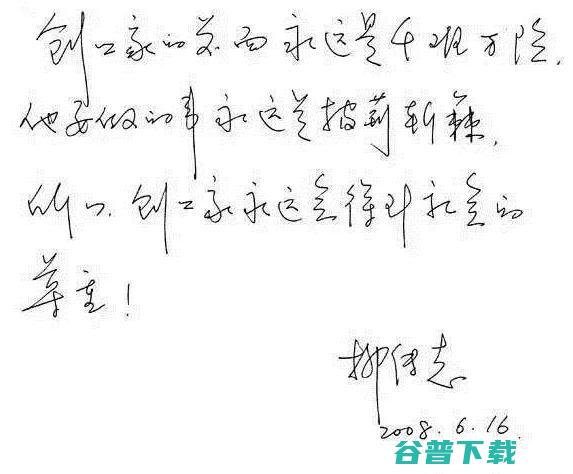 创业家的前面永远是千难万险,
他要做的事永远是披荆斩棘,
所以,创业家永远会得到社会的
尊重!
柳传志
2008.6.16.
谷普下载